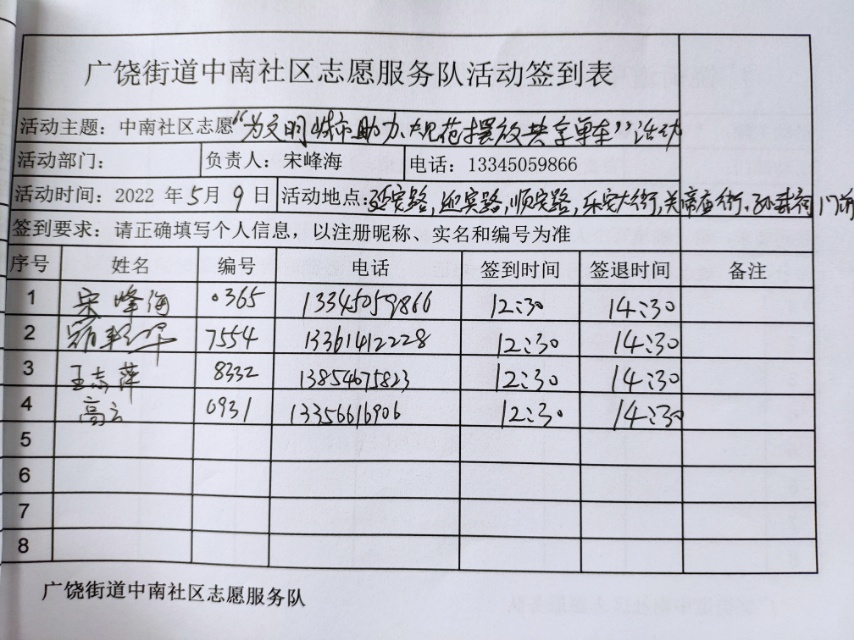 广饶街道中南社区志愿服务队活动签到表
活动主题：中南社区志愿“为文明城市助力、规范摆放共享单车”活动
活动部门： 负责人：宋峰海 电话：13345059866
活动时间：2022 年5月9日 活动地点：迎宾路，顺安路，乐安大街，关帝庙街，孙武祠门前
签到要求：请正确填写个人信息，以注册昵称、实名和编号为准
序号 姓名 编号 电话 签到时间 签退时间 备注
1 宋峰海 0365 13345059866 12:30 14:30
2 7554 13361412228 12:30 14:30
3 王志萍 8332 13854675823 12:30 14:30
4 高云 0931 13356616906 12:30 14:30
5
6
7
8
广饶街道中南社区志愿服务队